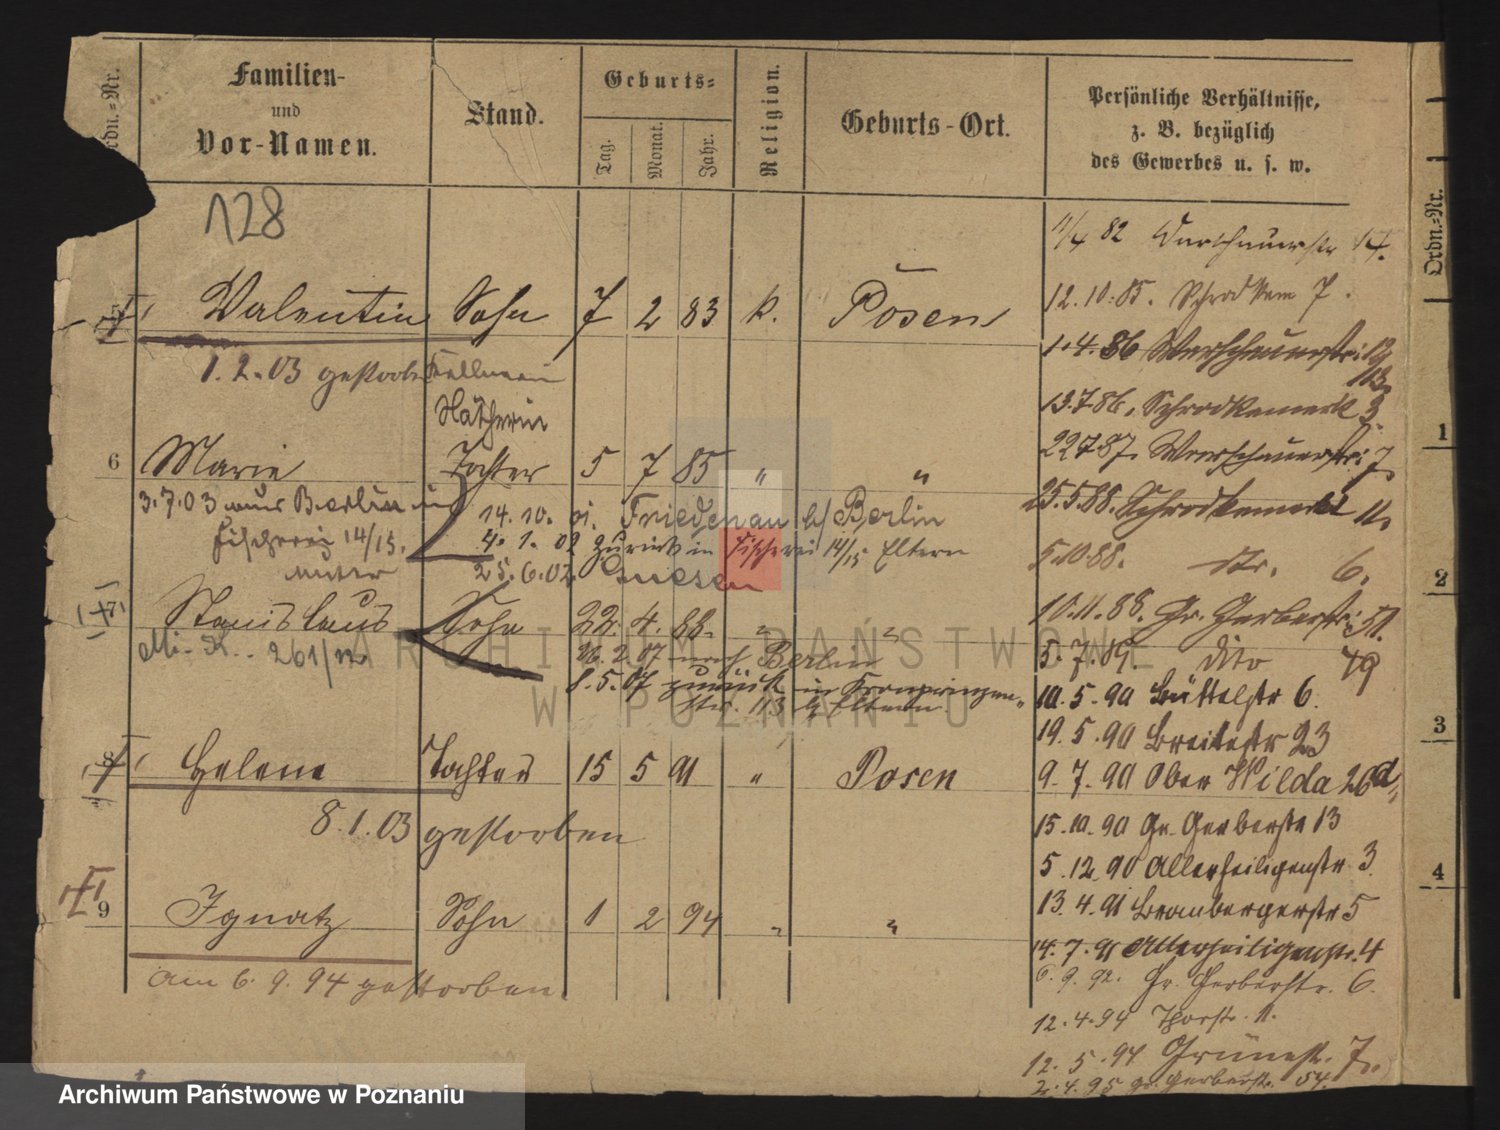 Ordn.-Nr.
Familien-
und
Vor-Namen.
Stand.
Geburts-
Tag.
Monat.
Jahr.
Religion.
Geburts-Ort.
Persönliche Verhältnisse,
z. B. bezüglich
des Gewerbes u. s. w.
128
11/4 82 14.
Valentin Sohn 7 2 83 k. Posen
12.10.85. Schrodkam 7.
1.2.03 gestorben Kellnerin
Näherin
1.4.86
13.7.86. Schrodkamerk 3.
6 Marie Tochter 5 7 85 " "
22.7.87. Warschauerstr. 7.
3.7.03 aus Berlin in
Fischerei 14/15.
14.10. 01. Friedenau b/ Berlin
4. 1. 02 zurück in Fischerei 14/15 Eltern
25.6.02 Gnesen
25.5.88. Schrodkamerk 11.
5.10.88. str. 6.
7 Stanislaus Sohn 22. 4. 88. " "
10.11.88. Gr. Gerberstr. 51.
Mi-K. 261/
26.2.07 nach Berlin
8.5.07 zurück in Kronprinzen-
str. 113 b/Eltern.
5.7.89. dito 49
10.5.90 Büttelstr 6.
19.5.90 Breitestr 23
8 Helene Tochter 15 5 91 " Posen
9.7.90 Ober Wilda 26d
8.1.03 gestorben
15.10.90 Gr. Gerberstr 13
5.12.90 Allerheiligenstr 3
9 Ignatz Sohn 1 2 94 " "
13.4.91 Brombergerstr 5
14.7.91 Allerheiligenstr. 4
am 6. 9. 94 gestorben.
6.9.92. Gr. Gerberstr. 6.
12.4.94 Thorstr. 11.
12.5.94 Grünestr. 7.
2.4.95 gr. Gerberstr. 54
Ordn.-Nr.
1
2
3
4
ARCHIWUM PAŃSTWOWE
W POZNANIU
Archiwum Państwowe w Poznaniu